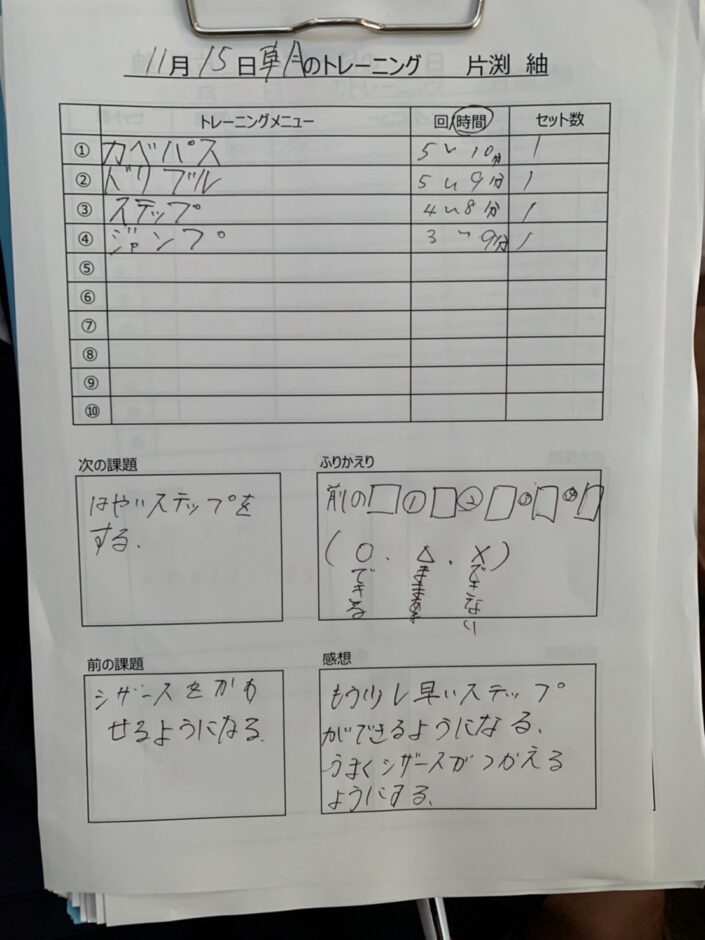 11月15日 のトレーニング 片渕 紬
トレーニングメニュー 回/時間 セット数
① カベパス 5〜10分 1
② ドリブル 5〜9分 1
③ ステップ 4〜8分 1
④ ジャンプ 3〜9分 1
⑤
⑥
⑦
⑧
⑨
⑩
次の課題
はやいステップを
する。
ふりかえり
前の□①□②□③□④□
(○・△・×)
できる
できない
前の課題
シザースをかわ
せるようになる。
感想
もう少し早いステップ
ができるようになる、
うまくシザースがつかえる
ようにする、